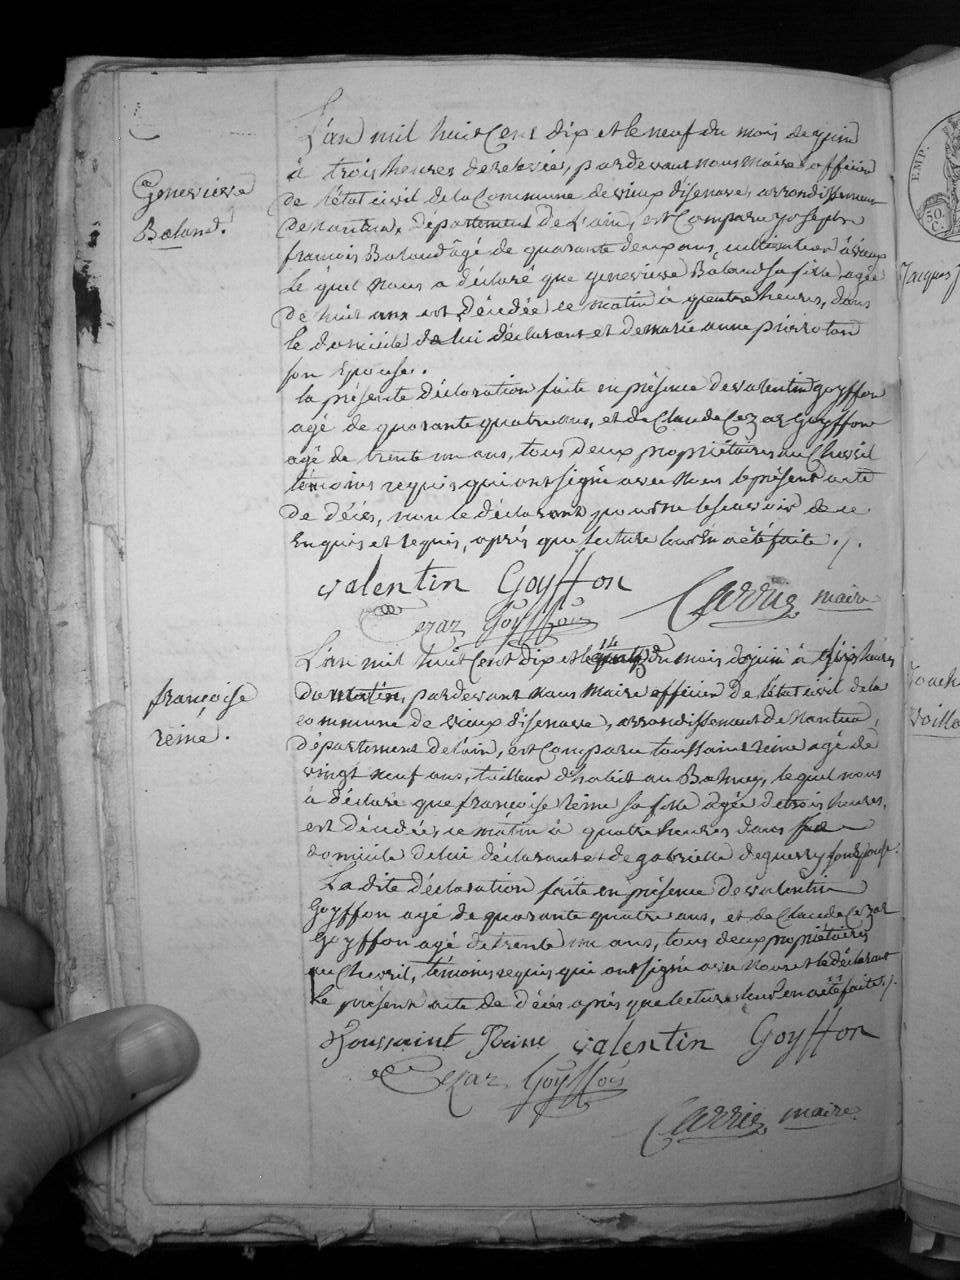 Genevieve
Baland.
L'an mil huit Cent dix et le neuf du mois de juin
à trois heures de relevée, pardevant nous maire officier
de l'état civil de la Commune de vieux d'isenave, arrondissement
de nantua, département de l'ain, est Comparu joseph
françois Baland âgé de quarante deux ans, cultivateur à vieux
le quel nous a déclaré que genevieve Baland sa fille agée
de huit ans est décédée ce matin à quatre heures, dans
le domicile de lui déclarant et de marie anne pierroton
son Epouse.
la présente déclaration faite en présence de valentin goyffon
agé de quarante quatre ans, et de Claude Cezar Goyffon
agé de trente un ans, tous deux propriétaires au Chevril
témoins requis qui ont signé avec Nous le présent acte
de décès, non le déclarant pour ne le savoir de ce
Enquis et requis, après que lecture leur En a été faite ./.
valentin Goyffon
Cezar Goyffon Carrier maire
françoise
reine.
L'an mil huit Cent dix et le 14 du mois de juin à heures
du matin, pardevant nous maire officier de l'état civil de la
commune de vieux d'isenave, arrondissement de Nantua,
département de l'ain, est Comparu toussaint reine agé de
vingt neuf ans, tailleur d'habit au Balmay, le quel nous
à déclaré que françoise reine sa fille âgée de trois heures,
est décédée ce matin à quatre heures dans
domicile de lui déclarant et de gabrielle deguerry son Epouse.
La dite déclaration faite en présence de valentin
Goyffon agé de quarante quatre ans, et de Claude Cezar
Goyffon agé de trente un ans, tous deux propriétaires
au Chevril, témoins requis qui ont signé avec Nous et le déclarant
le présent acte de décès après que lecture leur en a été faite ./.
Toussaint Reine valentin Goyffon
Cezar Goyffon
Carrier maire
EMP.
50.
C.
Jacques